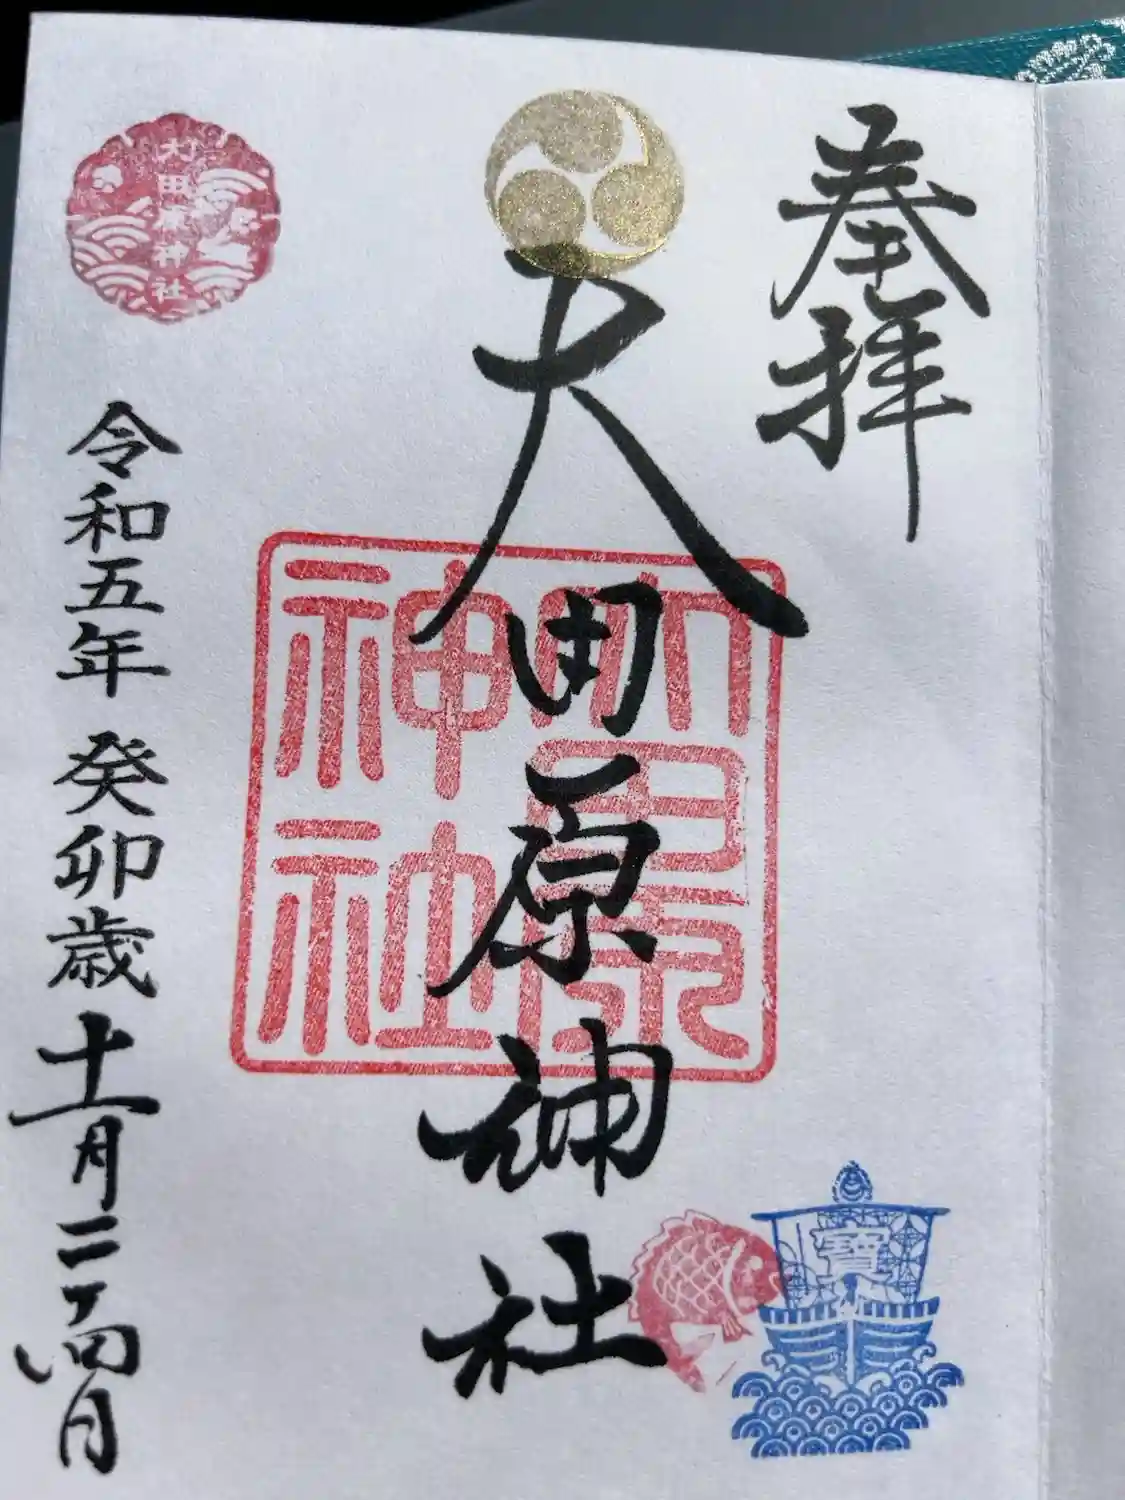 奉拝
寶
大田原神社
大田原
神社
大田原神社
令和五年 癸卯歳 十一月二十四日